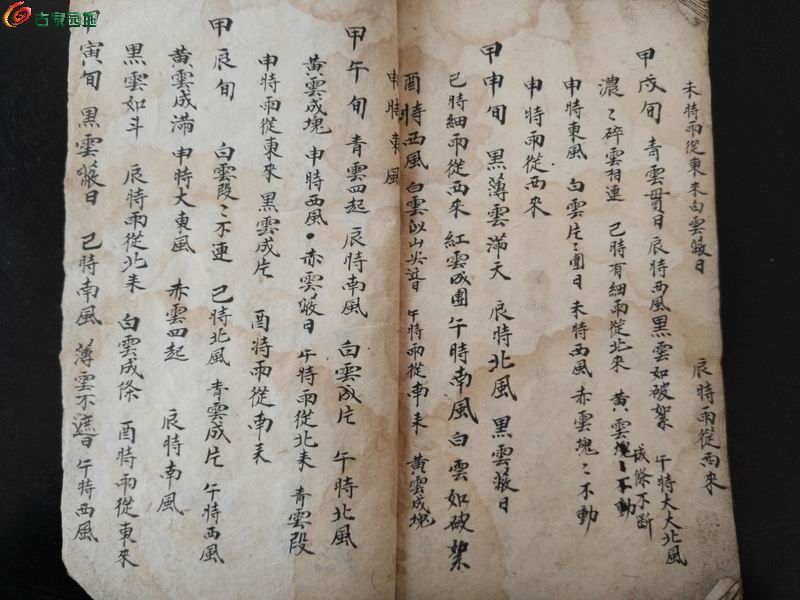 古泉园地
未時雨從東來白雲蔽日 辰時雨從西來
甲戌旬 青雲貫日辰時西風黑雲如破絮 午時大大北風
濃〻碎雲相連 己時有細雨從北來 黃雲塊〻不動
成條不斷
申時東風 白雲片〻圍日 未時西風赤雲塊〻不動
申時雨從西來
甲申旬 黑薄雲滿天 辰時北風 黑雲蔽日
己時細雨從西來 紅雲成團 午時南風白雲如破絮
酉時西風 白雲似山尖遮日 午時雨從南來 黃雲成塊
申時東風
甲午旬 青雲四起 辰時南風 白雲成片 午時北風
黃雲成塊 申時西風 赤雲蔽日 午時雨從北来 青雲段
申時雨從東來 黑雲成片 酉時雨從南来
甲辰旬 白雲段〻不連 己時北風 青雲成片 午時西風
黃雲成滿 申時大東風 赤雲四起 辰時南風
黑雲如斗 辰時雨從北来 白雲成條 酉時雨從東來
甲寅旬 黑雲蔽日 己時南風 薄雲不遮日 午時西風